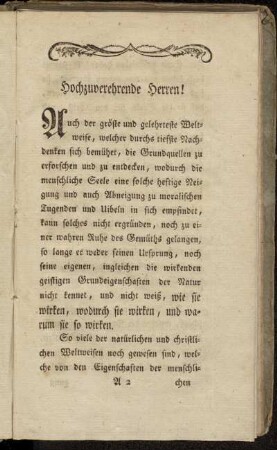 Hochzuverehrende Herren!
Auch der größte und gelehrteste Welt-
weise, welcher durchs tiefste Nach-
denken sich bemühet, die Grundquellen zu
erforschen und zu entdecken, wodurch die
menschliche Seele eine solche heftige Nei-
gung und auch Abneigung zu moralischen
Tugenden und Uibeln in sich empfindet,
kann solches nicht ergründen, noch zu ei-
ner wahren Ruhe des Gemüths gelangen,
so lange er weder seinen Ursprung, noch
seine eigenen, ingleichen die wirkenden
geistigen Grundeigenschaften der Natur
nicht kennet, und nicht weiß, wie sie
wirken, wodurch sie wirken, und wa-
rum sie so wirken.
So viele der natürlichen und christli-
chen Weltweisen noch gewesen sind, wel-
che von den Eigenschaften der menschli-
A 2 chen